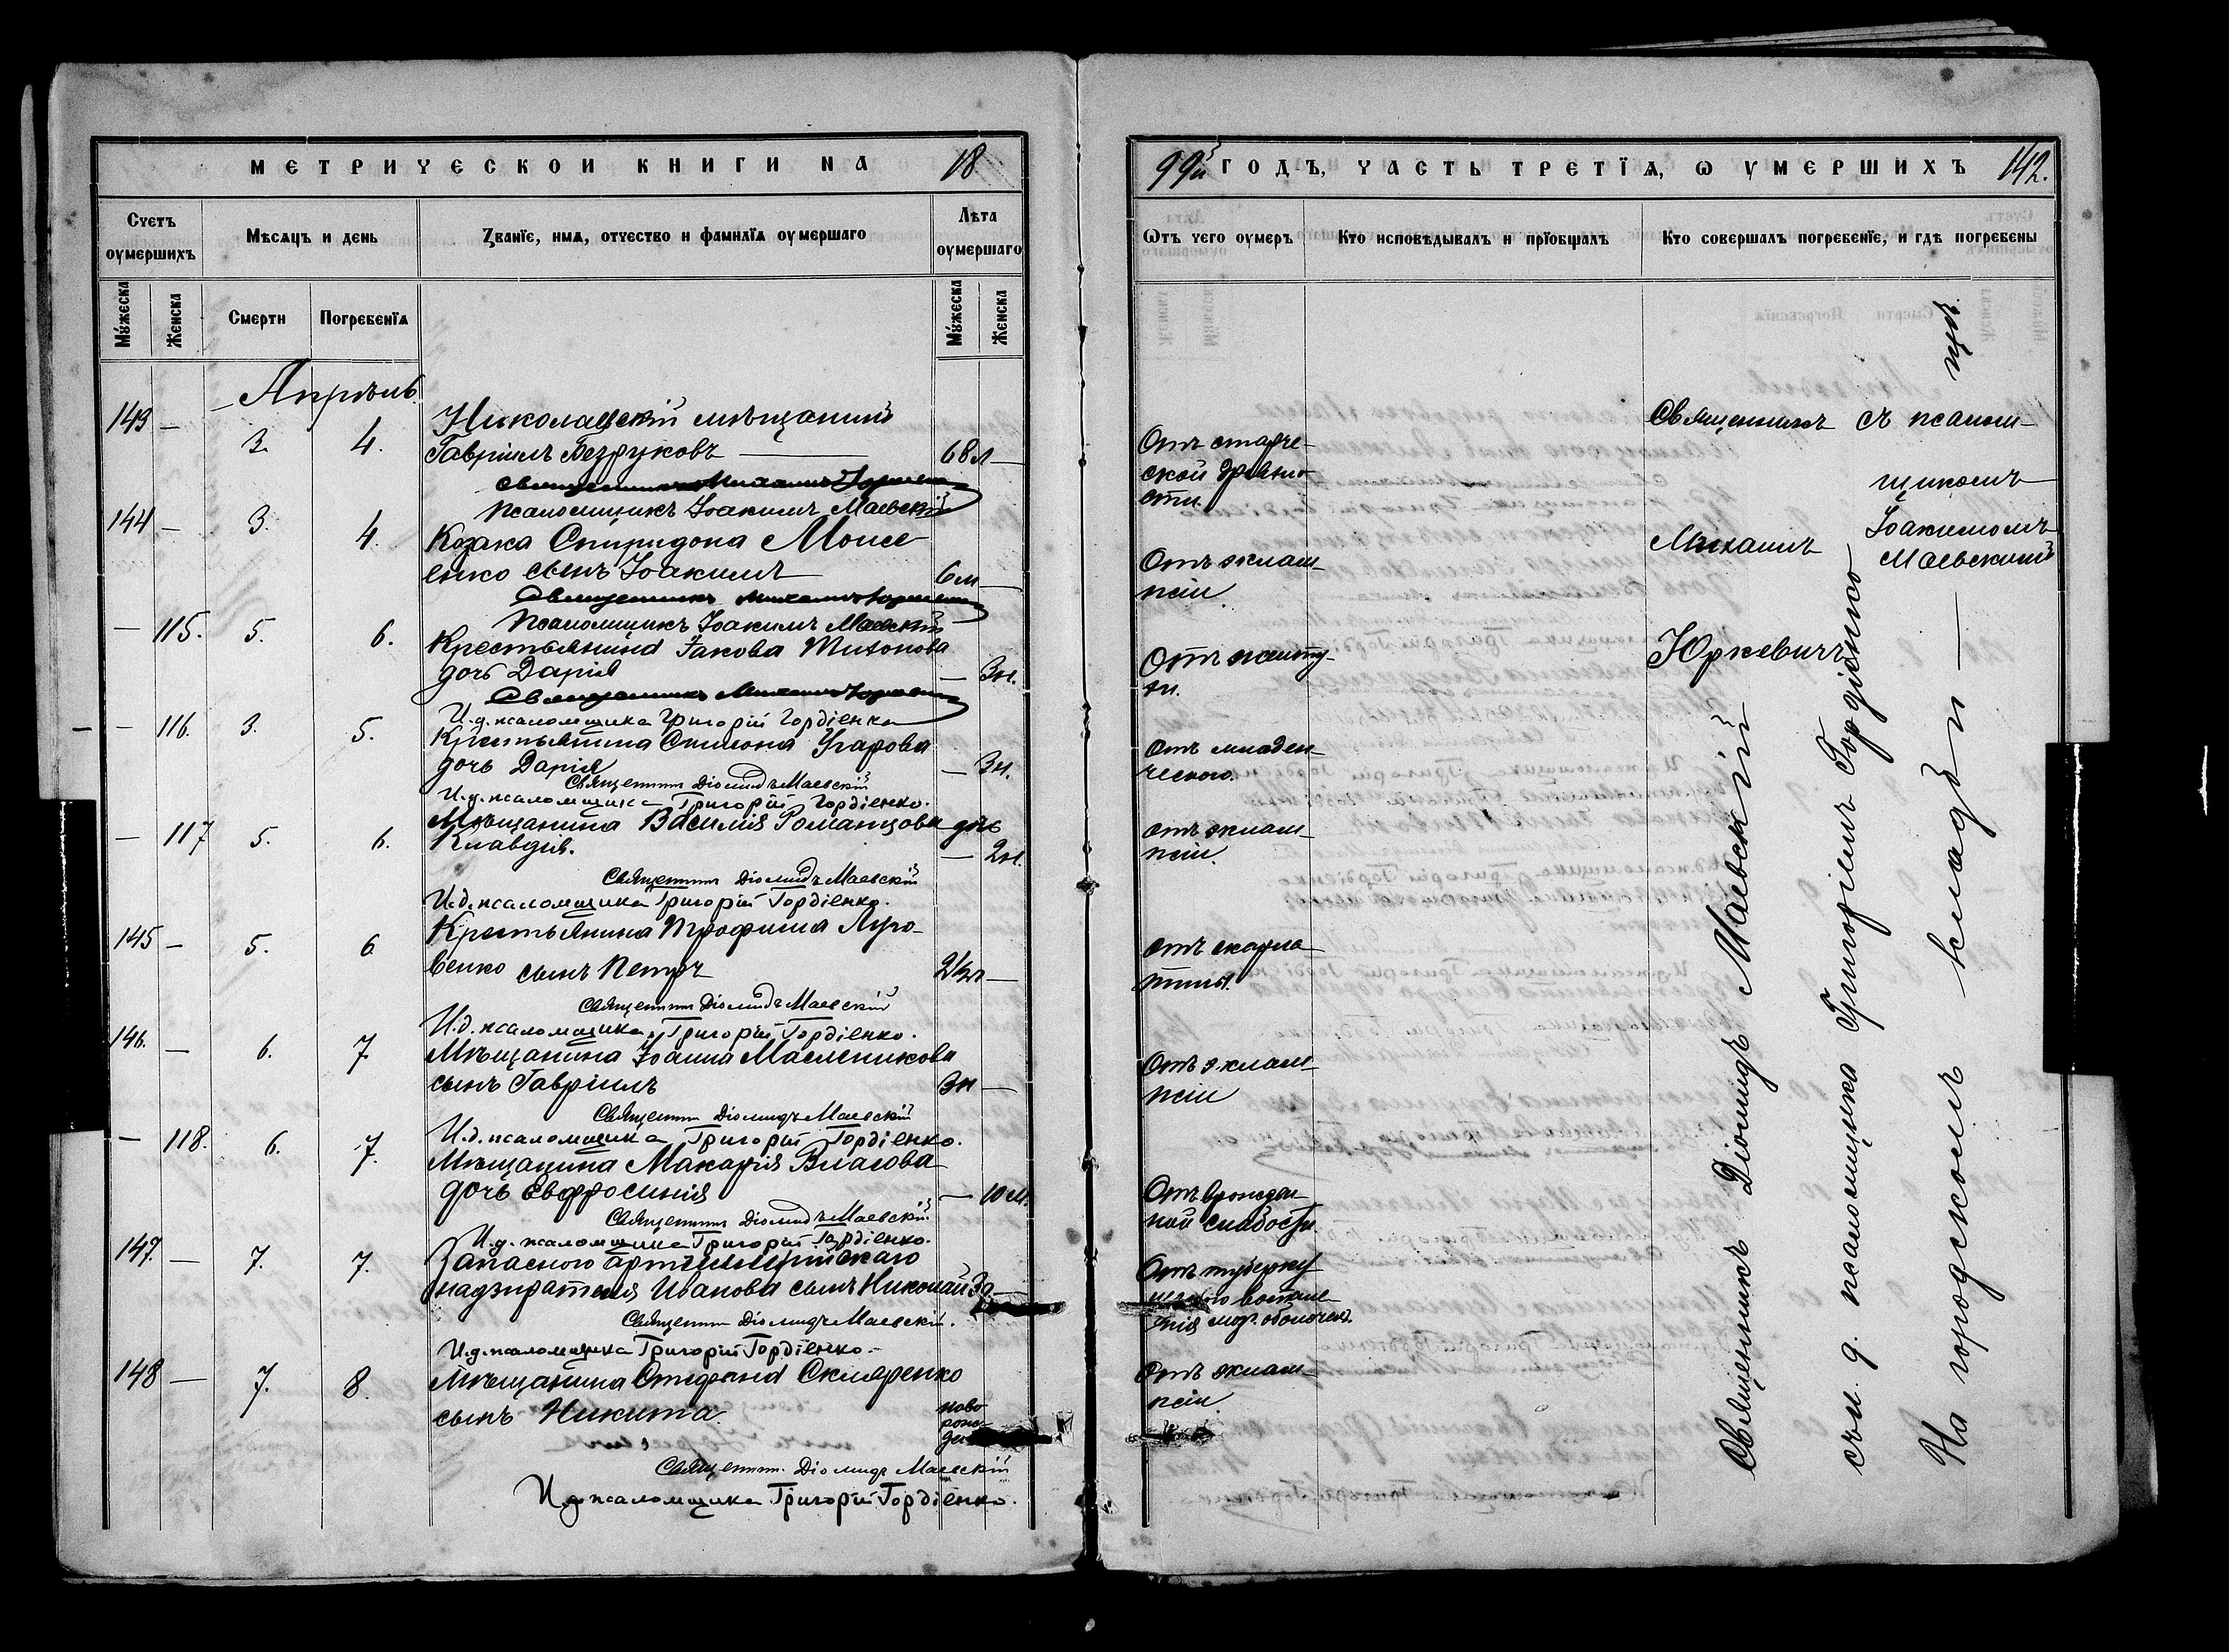 МЕТРИЧЕСКОЙ КНИГИ НА 18
Счетъ оумершихъ
Мѣсяцъ и день
Званїе, имя, отчество и фамилїя оумершаго
Лѣта оумершаго
Мужеска
Женска
Смерти
Погребенїя
Мужеска
Женска
Апрѣль
143 — 3. 4. Николаевскій мѣщанинъ
Гавріилъ Безруковъ — 68 л —
Священникъ Михаилъ Юркевичъ
Псаломщикъ Іоакимъ Маевскій
144 — 3. 4. Козака Спиридона Моисе
енко сынъ Іоакимъ 6 м —
Священникъ Михаилъ Юркевичъ
Псаломщикъ Іоакимъ Маевскій
— 115. 5. 6. Крестьянина Іакова Тихонова
дочь Дарія — 3 н.
Священникъ Михаилъ Юркевичъ
И.д. псаломщика Григорій Гордіенко
— 116. 3. 5. Крестьянина Симеона Угарова
дочь Дарія — 3 н.
Священникъ Діомидъ Маевскій
И.д. псаломщика Григорій Гордіенко.
— 117 5. 6. Мѣщанина Василія Романцова дочь
Клавдія. — 2 н.
Священникъ Діомидъ Маевскій
И.д. псаломщика Григорій Гордіенко.
145 — 5. 6 Крестьянина Трофима Луго-
венко сынъ Петръ 2½ л —
Священникъ Діомидъ Маевскій
И.д. псаломщика Григорій Гордіенко.
146. — 6. 7. Мѣщанина Іоанна Масленикова
сынъ Гавріилъ 3 н —
Священникъ Діомидъ Маевскій
И.д. псаломщика Григорій Гордіенко.
— 118. 6. 7. Мѣщанина Макарія Власова
дочь Евфросинія — 10 м.
Священникъ Діомидъ Маевскій
И.д. псаломщика Григорій Гордіенко.
147. — 7. 7. Запаснаго артиллерійскаго
надзирателя Иванова сынъ Николай 3 —
Священникъ Діомидъ Маевскій.
И.д. псаломщика Григорій Гордіенко.
148 — 7. 8. Мѣщанина Стефана Скляренко
сынъ Никита. ново
рож-
Священник. Діомидъ Маевскій
И.д. псаломщика Григорій Гордіенко.
99й ГОДЪ, ЧАСТЬ ТРЕТЇЯ, Ѡ УМЕРШИХЪ 142.
Ѿтъ чего оумеръ
Кто исповѣдывалъ и прїобщалъ
Кто совершалъ погребенїе, и гдѣ погребены
Отъ старче-
ской дряхло-
сти.
Отъ эклам-
псіи.
Отъ
Отъ младен-
ческого.
отъ эклам-
псіи.
отъ скарла
тины.
Отъ эклам-
псіи
Отъ врожден-
ной слабости.
Отъ туберку
лезнаго воспале-
нія мозг. оболочекъ.
Отъ эклам-
псіи.
Священникъ съ псалом-
щикомъ
Михаилъ Іоакимомъ
Маевскимъ
Юркевичъ
Священникъ Діомидъ Маевскій
съ и. д. псаломщика Григоріемъ Гордіенко
На городскомъ кладби —
щѣ.